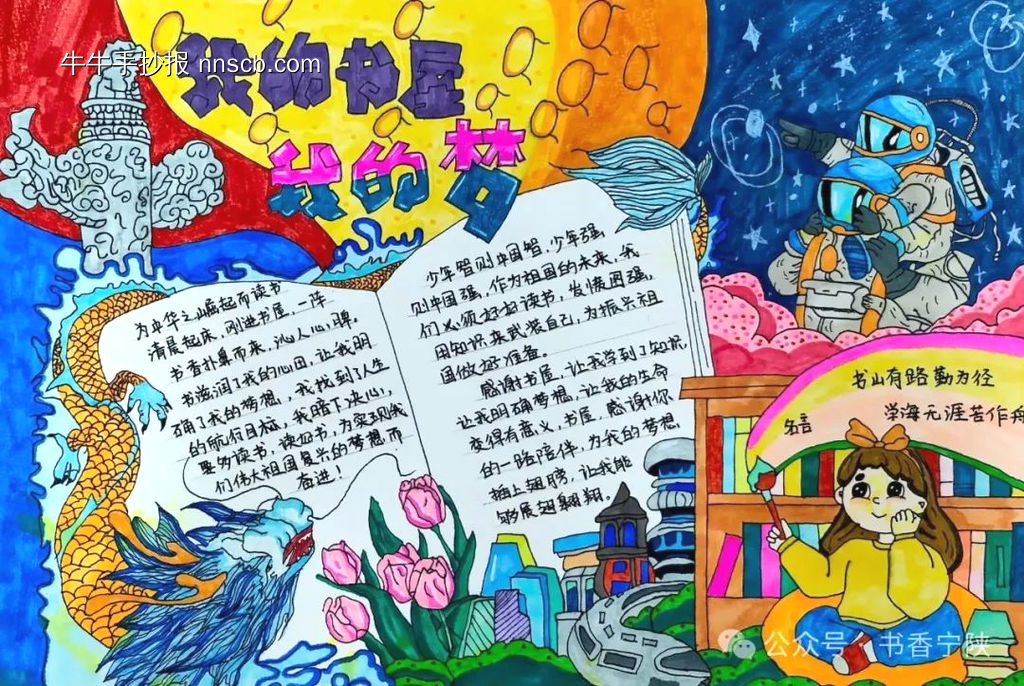 牛牛手抄报 nnscb.com
我的书屋
我的梦
为中华之崛起而读书
清晨起床，刚进书屋，一阵
书香扑鼻而来，沁人心脾。
书滋润了我的心田，让我明
确了我的梦想，我找到了人生
的航行目标，我暗下决心，
要多读书，读好书，为实现我
们伟大祖国复兴的梦想而
奋进！
少年智则中国智，少年强
则中国强，作为祖国的未来，我
们必须好好读书，发愤图强，
用知识来武装自己，为振兴祖
国做好准备。
感谢书屋，让我学到了知识，
让我明确梦想，让我的生命
变得有意义，书屋，感谢你
的一路陪伴，为我的梦想
插上翅膀，让我能
够展翅翱翔。
名言
书山有路勤为径
学海无涯苦作舟
公众号·书香宁陕